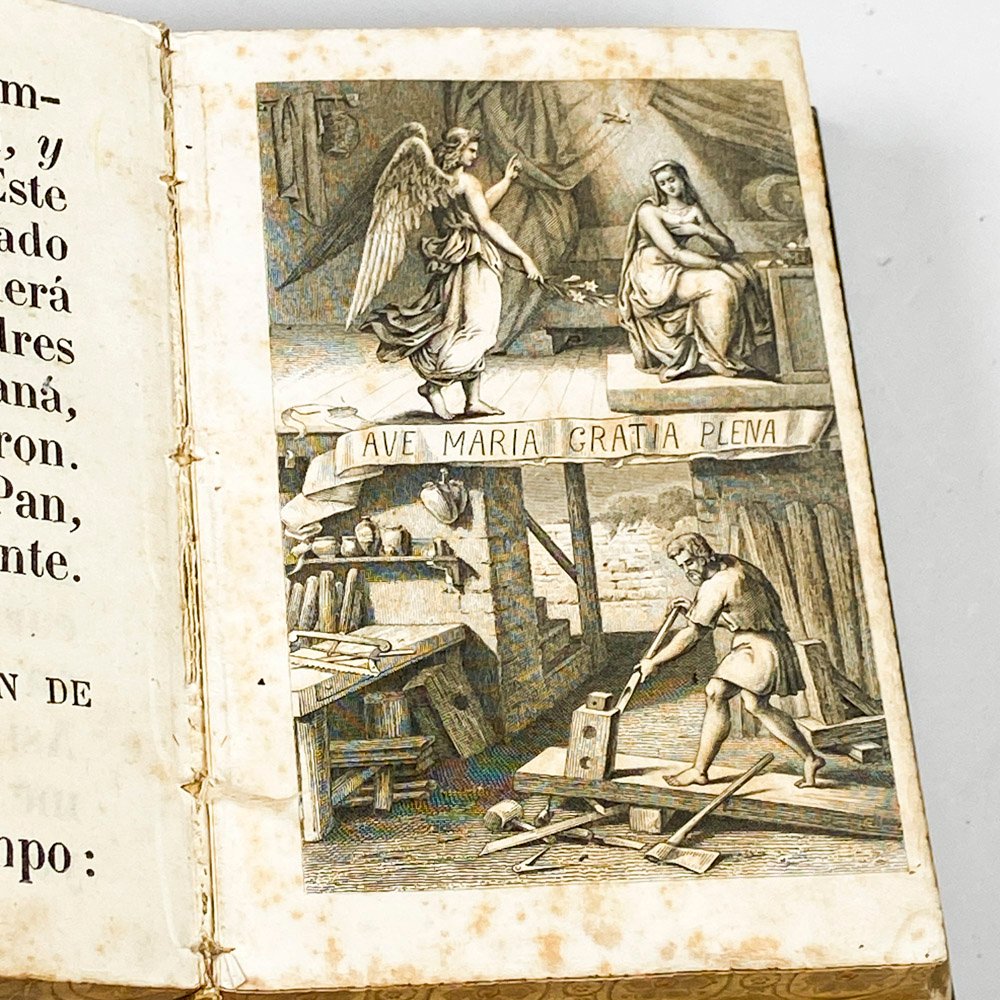 m-
, y
Este
ado
erá
dres
aná,
ron.
Pan,
nte.
N DE
mpo:
AVE MARIA GRATIA PLENA